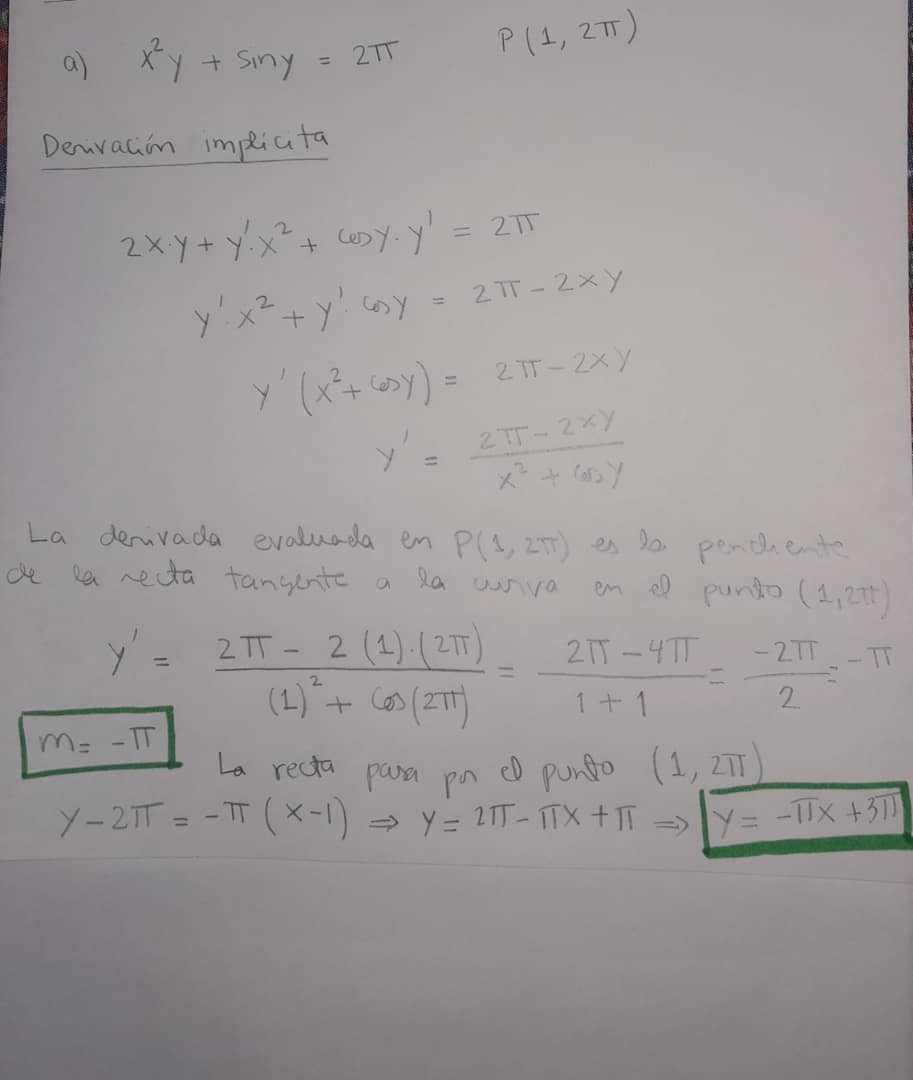 a) x²y + siny = 2π P(1, 2π)
Derivación implícita
2x·y + y'·x² + cosy·y' = 2π
y'·x² + y'·cosy = 2π - 2xy
y'(x² + cosy) = 2π - 2xy
y' = (2π - 2xy)/(x² + cosy)
La derivada evaluada en P(1, 2π) es la pendiente
de la recta tangente a la curva en el punto (1, 2π)
y' = (2π - 2(1)·(2π))/((1)² + cos(2π)) = (2π - 4π)/(1 + 1) = -2π/2 = -π
m = -π
La recta pasa por el punto (1, 2π)
y - 2π = -π(x-1) ⇒ y = 2π - πx + π ⇒ y = -πx + 3π